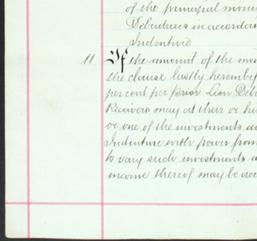 of the principal mon
Debentures in accordan
Indenture
11 If the amount of the inv
the clause lastly hereinbef
per cent per prior Lien Deb
Receivers may at their or he
or one of the investments au
Indenture with power from
to vary such investments a
income thereof may be acc